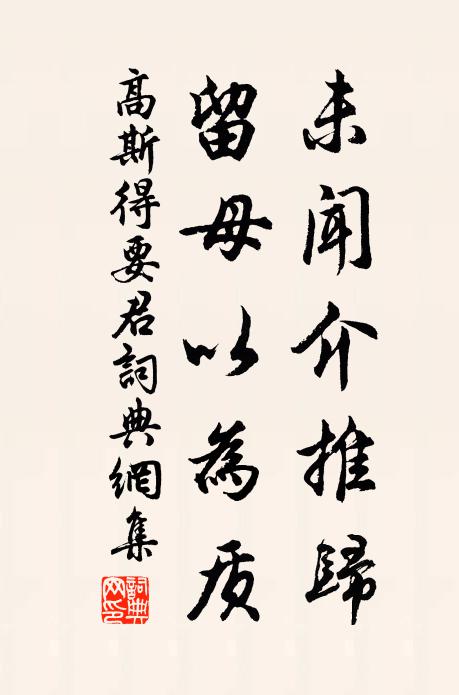 未闻介推歸
留母以為质
高斯得要君詞典網集
詞典网印